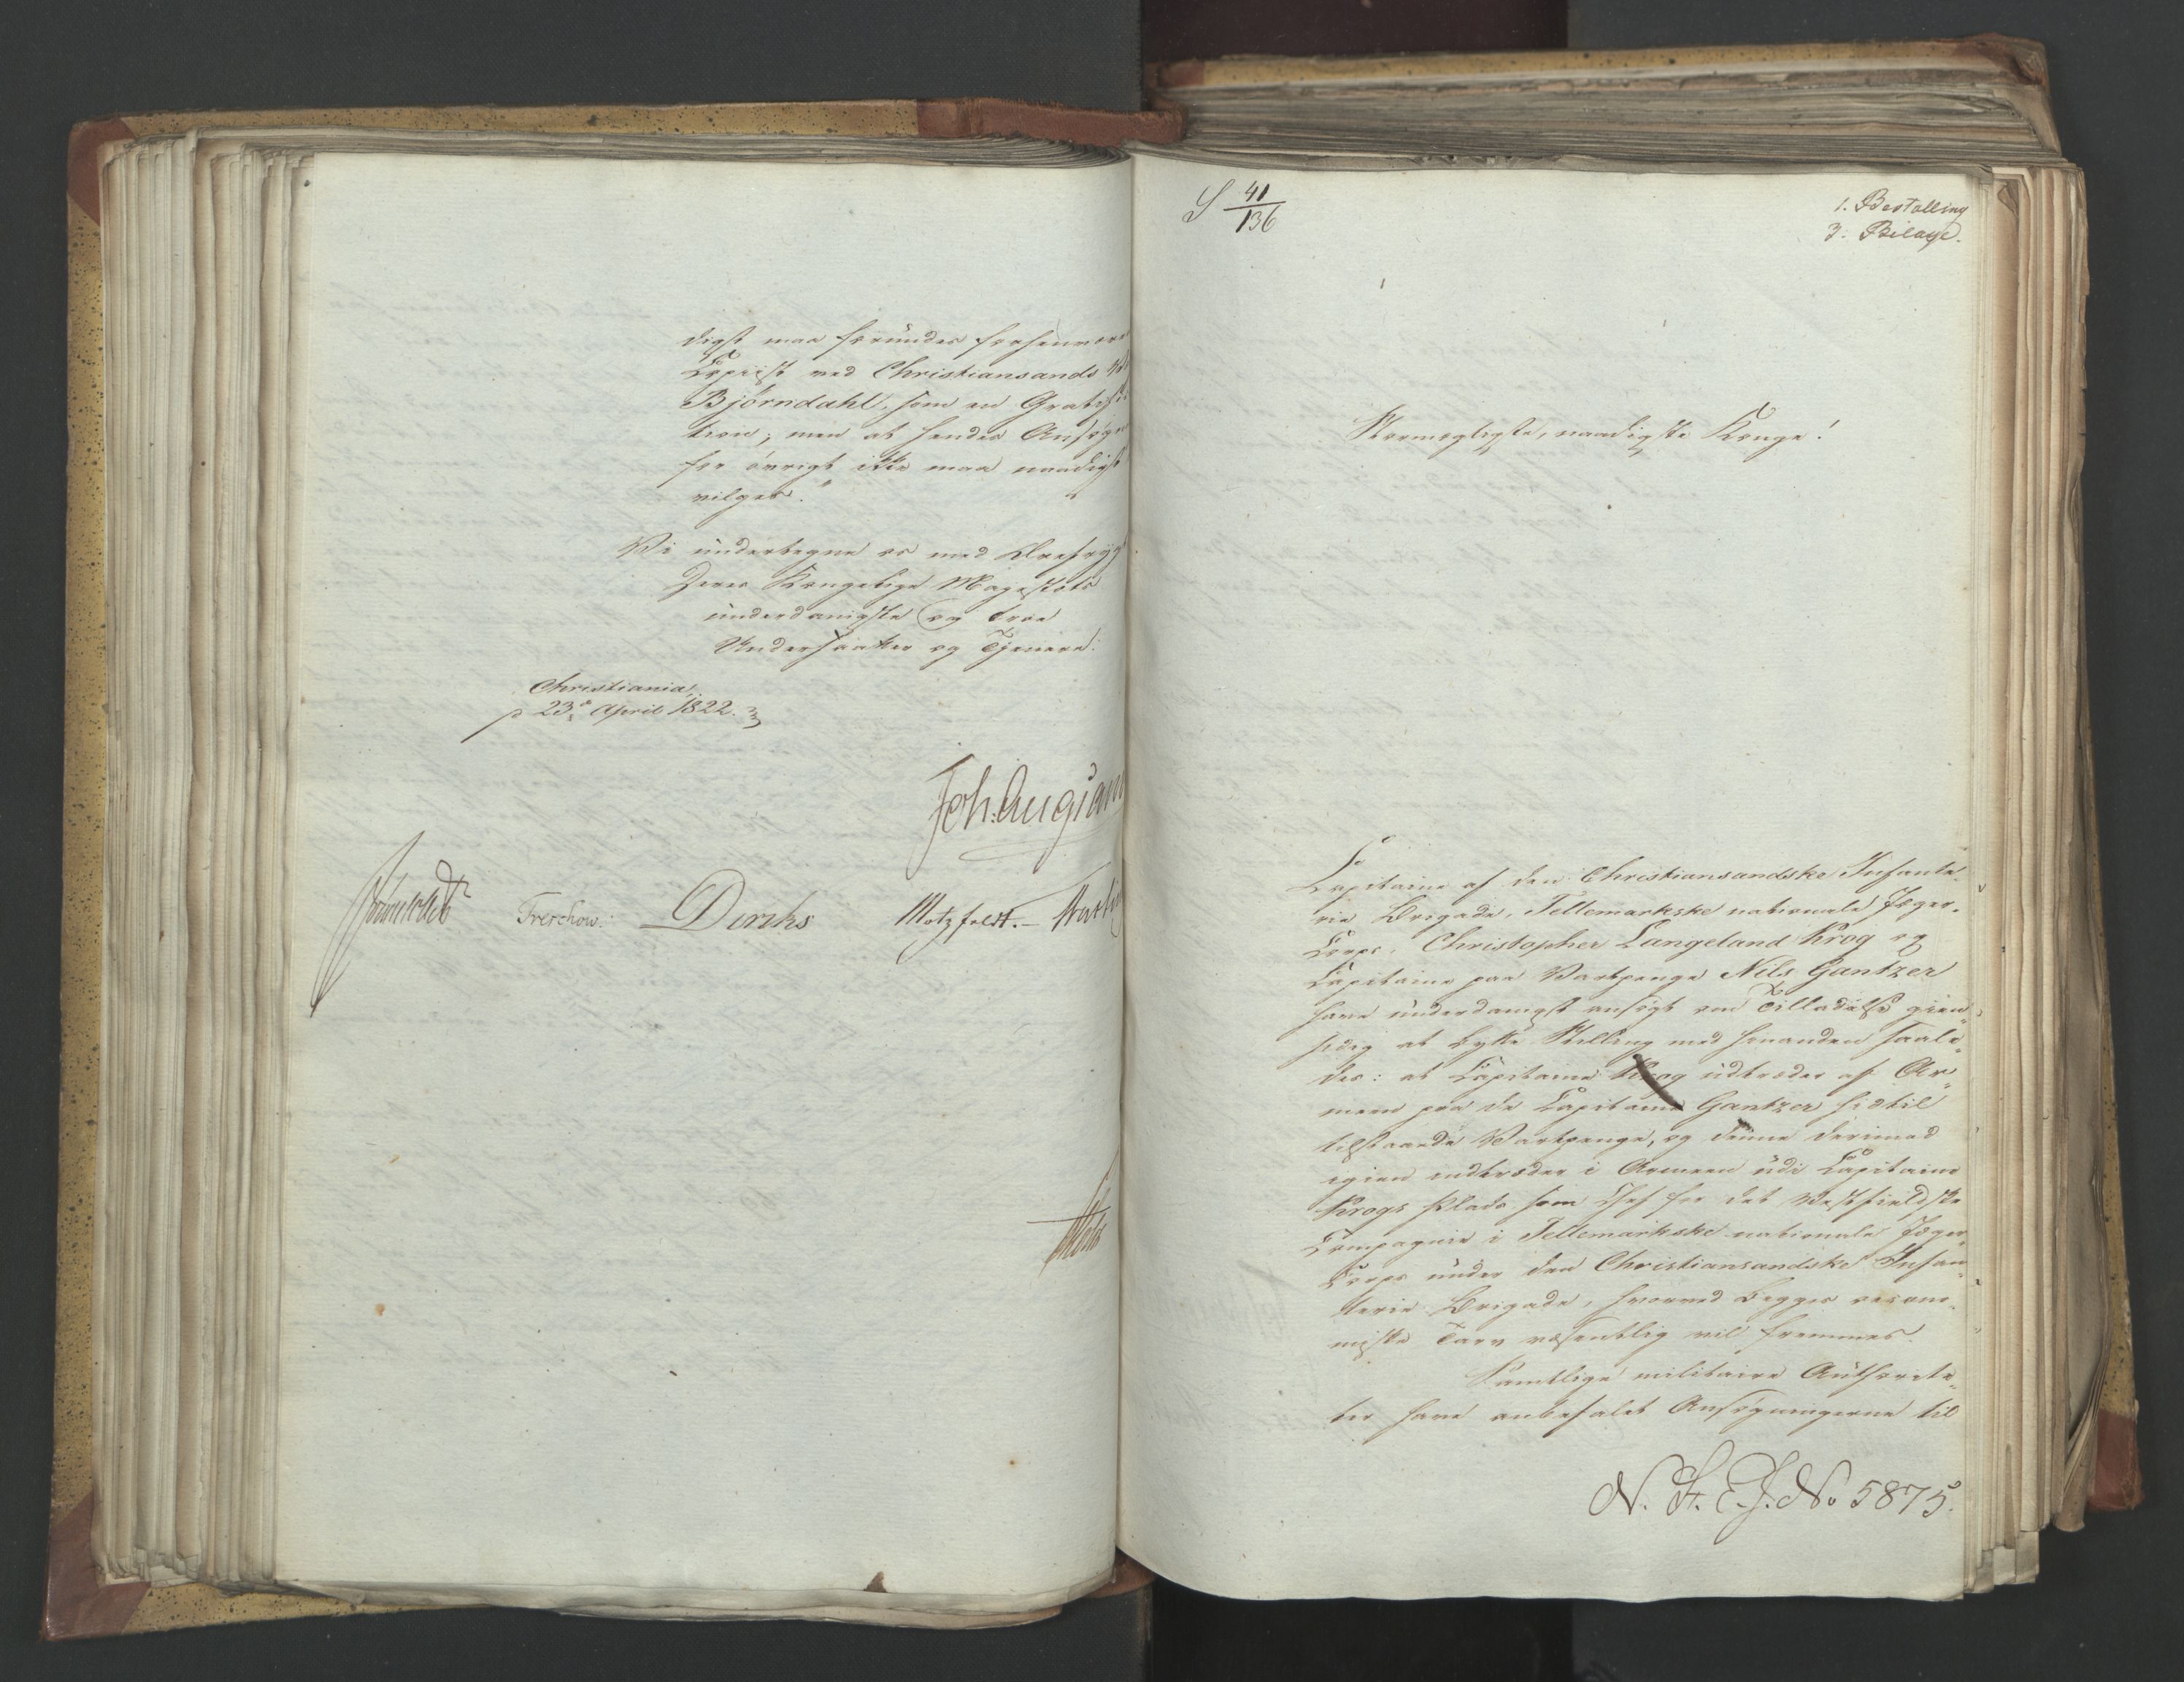 digst maa forundes forhenvære
Copiist ved Christiansands
Bjørndahl, som en Gratifi
tion; men at hendes Ansøgn
for øvrigt ikke maa naadigst
vilges."
Vi undertegne os med Ærefrygt
Deres Kongelige Majestæts
underdanigste og troe
Undersaatter og Tjenere:
Christiania,
23de April 1822.
Joh. Aug
Treschow. Diriks Motzfeldt.
Holst
S 41/136
1. Bestalling
3. Bilage.
Stormægtigste, naadigste Konge!
Capitaine af den Christiansandske Infante-
rie Brigade, Tellemarkske nationale Jæger-
Corps, Christopher Langeland Krog og
Capitaine paa Vartpenge Nils Gantzer
have underdanigst ansøgt om Tilladelse gien-
sidig at bytte Stilling med hinanden saale-
des: at Capitaine Krog udtræder af Ar-
meen paa de Capitaine Gantzer hidtil
tilstaaede Vartpenge, og denne derimod
igien indtræder i Armeen udi Capitaine
Krogs Plads som Chef for det Vestfieldske
Compagnie i Tellemarkske nationale Jæger-
Corps under den Christiansandske Infan-
terie Brigade, hvorved begges oecono-
miske Tarv væsentlig vil fremmes.
Samtlige militaire Authorite-
ter have anbefalet Ansøgningerne til
N. F. E. J. No 5875.